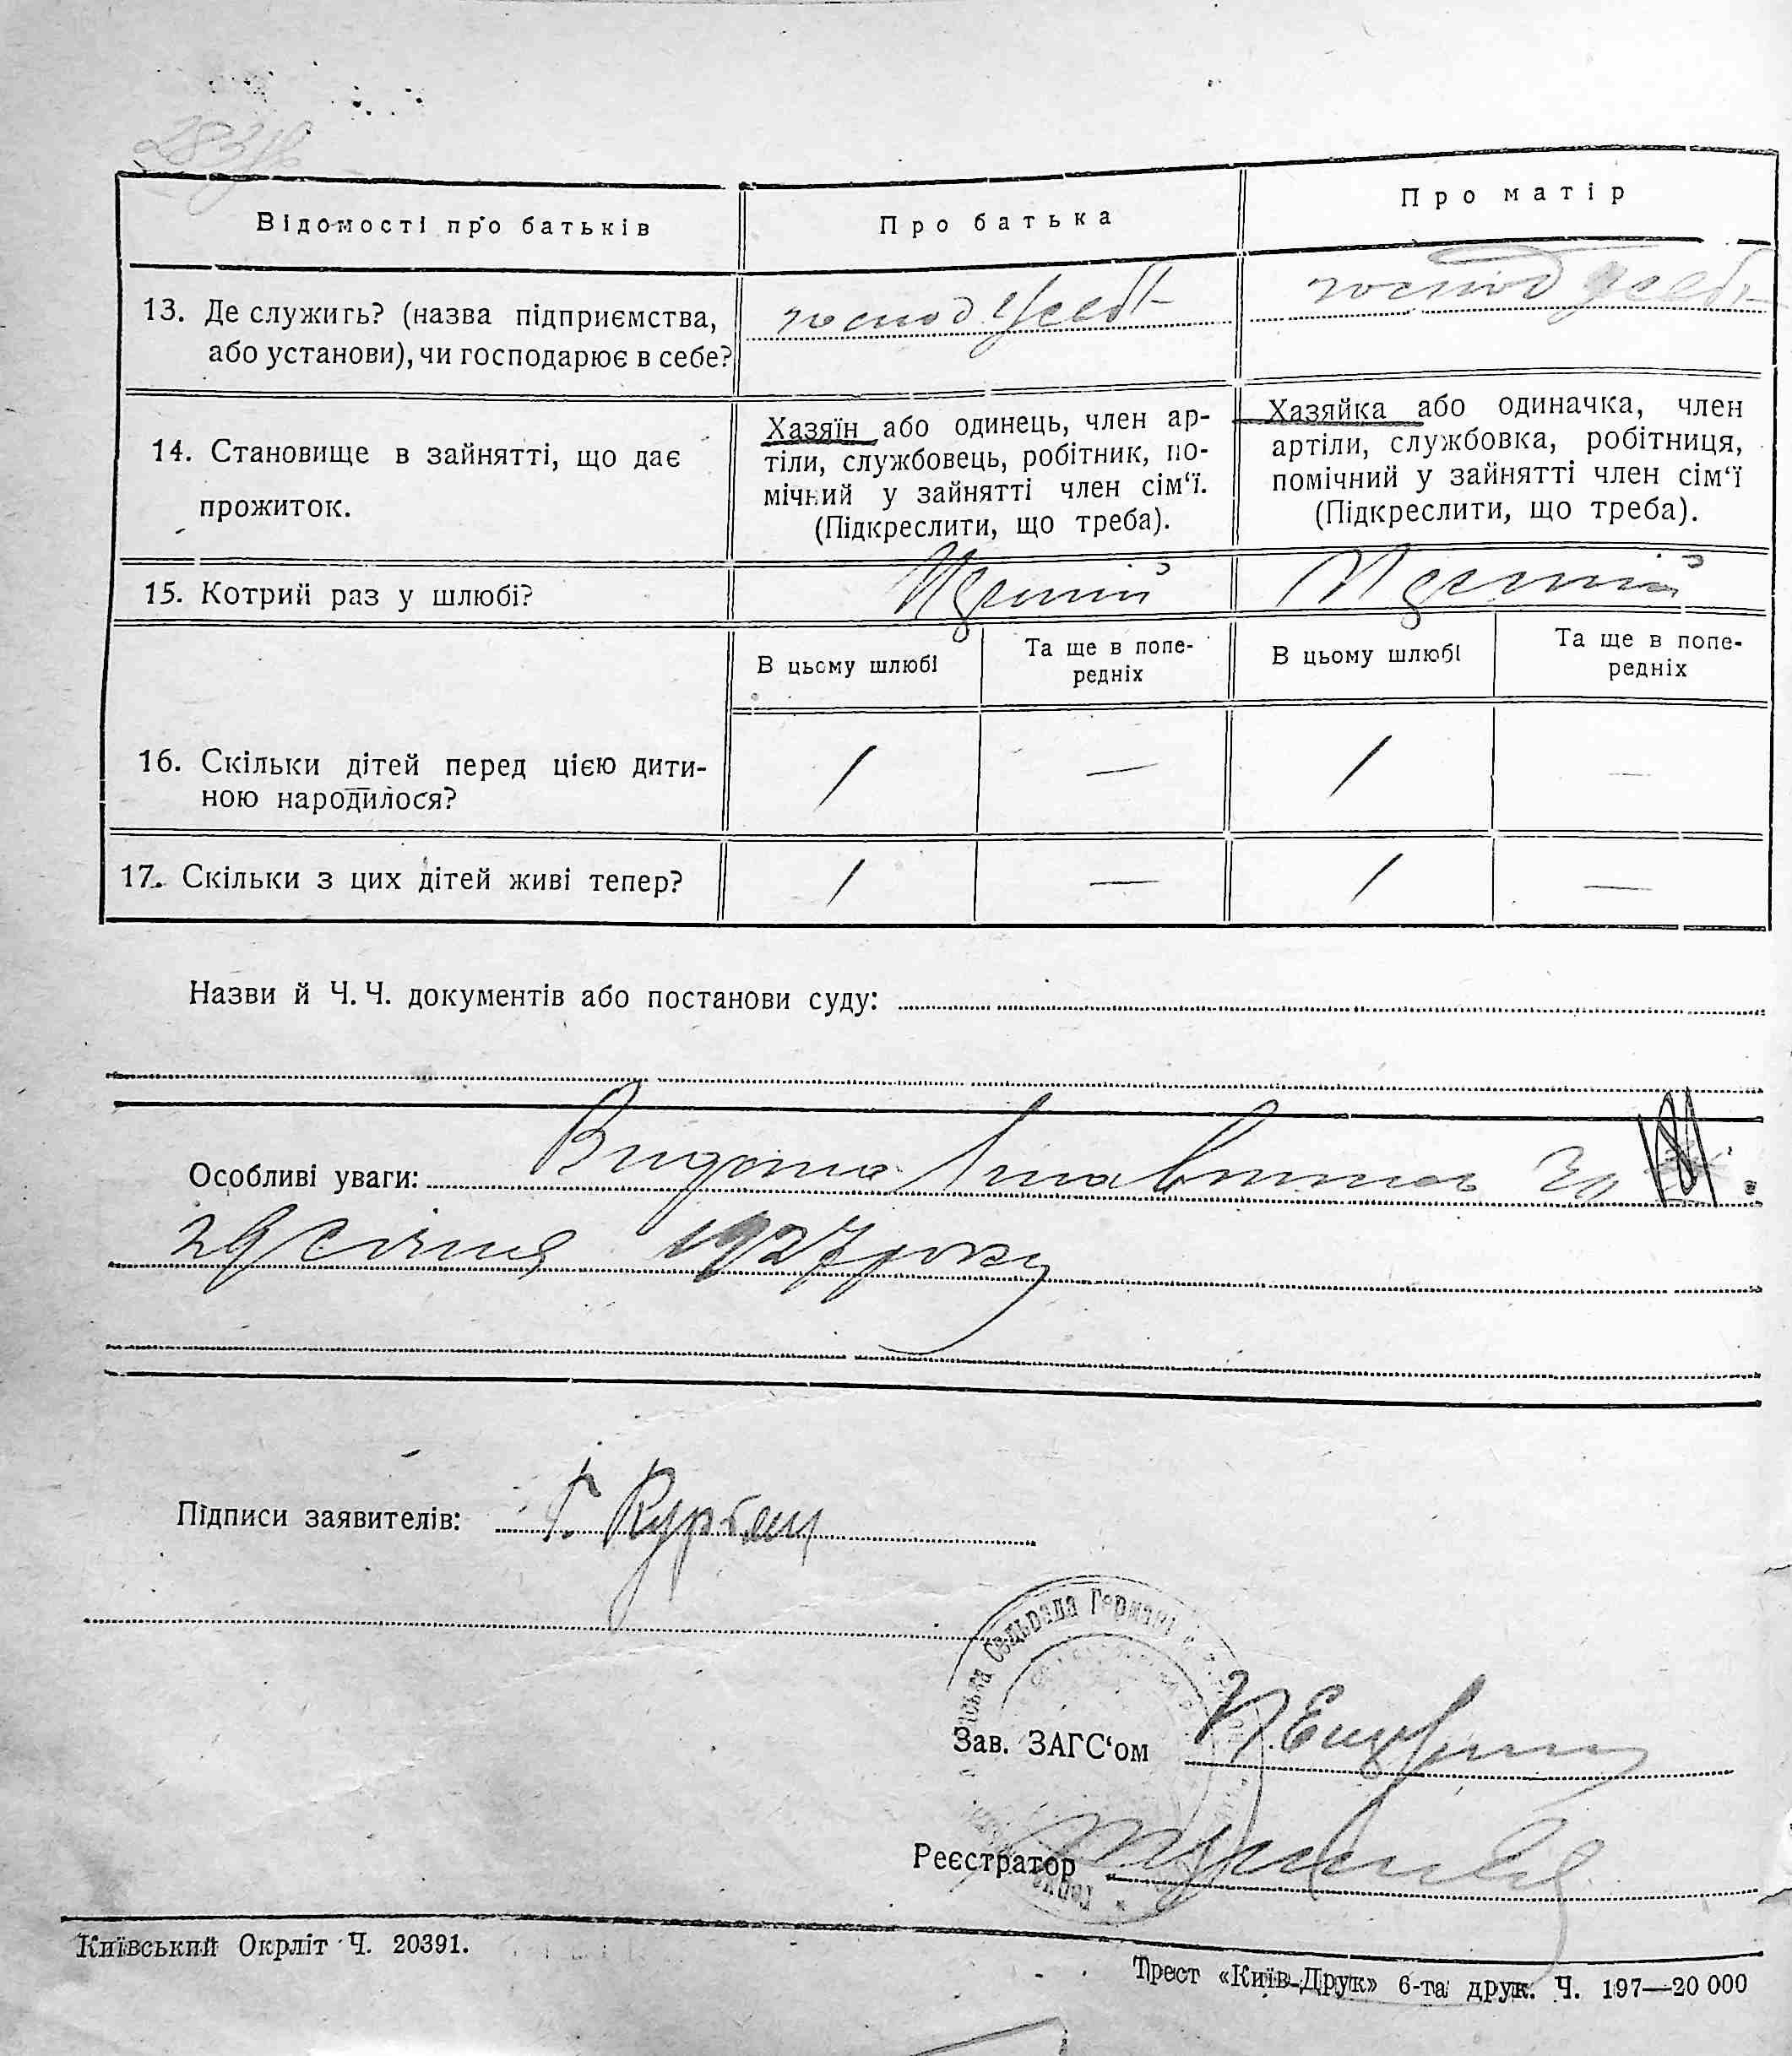 Відомості про батьків
Про батька
Про матір
13. Де служить? (назва підприємства,
або установи), чи господарює в себе?
господ
господ
14. Становище в зайнятті, що дає
прожиток.
Хазяїн або одинець, член ар-
тіли, службовець, робітник, по-
мічний у зайнятті член сім‘ї.
(Підкреслити, що треба).
Хазяйка або одиначка, член
артіли, службовка, робітниця,
помічний у зайнятті член сім‘ї
(Підкреслити, що треба).
15. Котрий раз у шлюбі?
В цьому шлюбі
Та ще в попе-
редніх
В цьому шлюбі
Та ще в попе-
редніх
16. Скільки дітей перед цією дити-
ною народилося?
/ — / —
17. Скільки з цих дітей живі тепер?
/ — / —
Назви й Ч. Ч. документів або постанови суду:
Особливі уваги: за
29 січня 1927 року
Підписи заявителів: Г.
Сельрада
Зав. ЗАГС‘ом
Реєстратор
Київський Окрліт Ч. 20391.
Трест «Київ-Друк» 6-та друк. Ч. 197—20 000